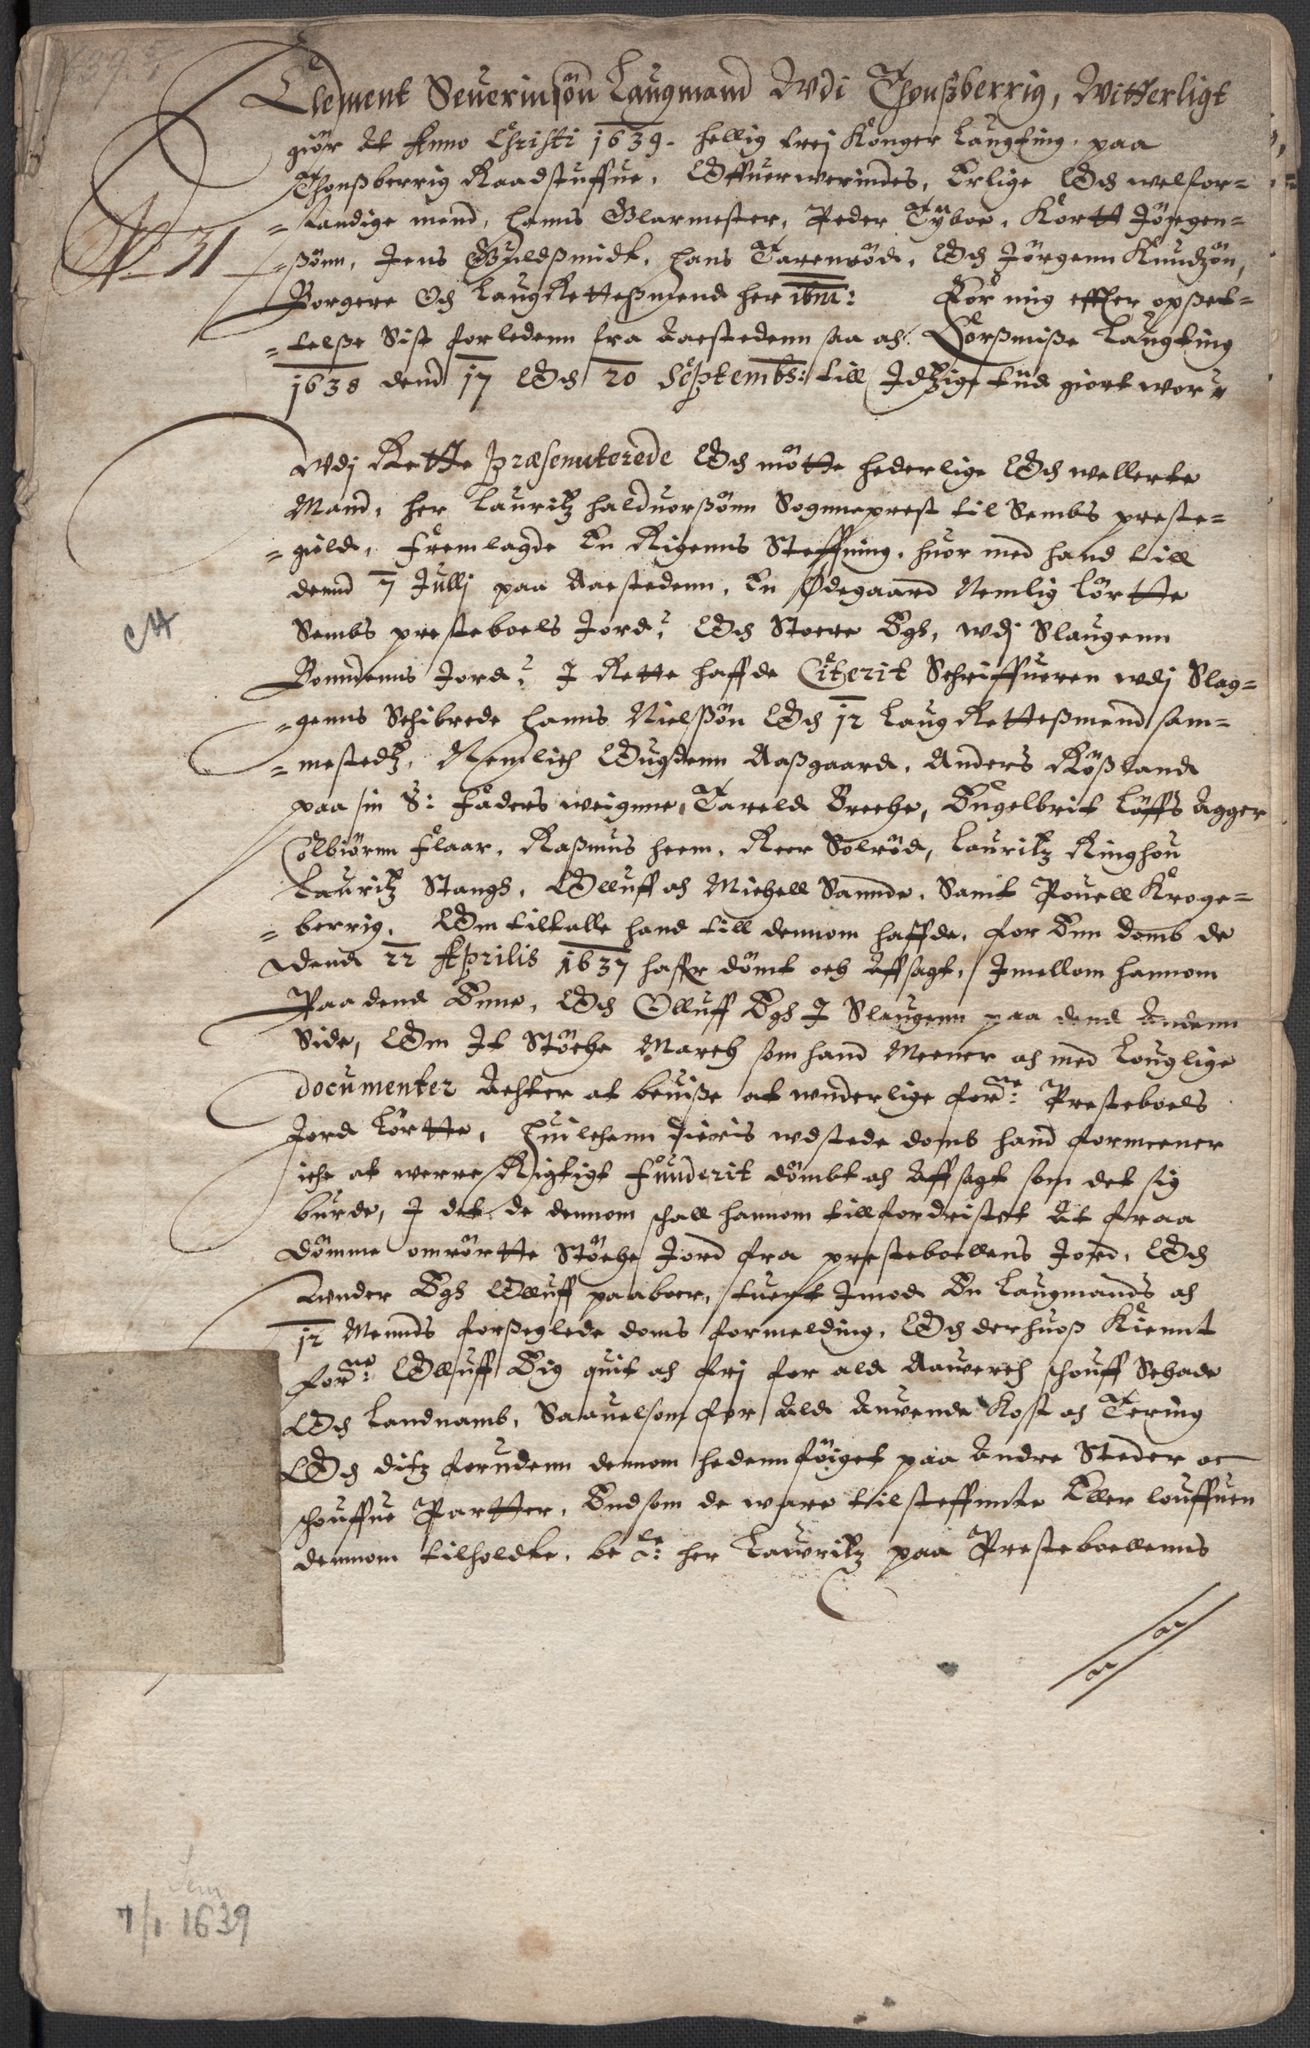 Clement Seuerinsøn Laugmand Wdi Thonßberrig, Witterligt
giør At Anno Christi 1639. hellig trej Konger Laugting, paa
Thonßberrig Raadstuffue, Offuerwerindes, Erlige Och welfor-
=standige mend, hans Glarmester, Peder Tyboe, Kortt Jørgen-
No 31
=ßønn, Jens Guldßmidt, hans Farenrød, Och Jørgenn Knudzøn,
Borgere Och LaugRetteßmend her ibm: For mig effter opset-
=telße Sist forledenn fra Aastedenn saa och Korßmiße Laugting
1638 dend 17 Och 20 Septembs: till Jdtzige tiid giort wor,
Wdj Rette præsennterede Och møtte hederlige Och wellerte
Mand, her Lauritz halduorßønn Sogneprest til Sembs preste-
=gield, Fremlagde En Rigenns Steffning, huor med hand till
dennd 7 Jullj paa Aastedenn, En Ødegaard Nemlig Lørtte
Sembs presteboels Jord, Och Stoere Egh, wdj Slaugenn
Bonndenns Jord, J Rette haffde Citerit Schriffueren wdj Slag-
=genns Schibrede hanns Nielßøn Och 12 Laug Retteßmend sam-
=mestedtz, Nemlich Gugdenn Aaßgaard, Anders Røßland
paa sin S: Faders weignne, Tareld Breche, Engelbrit Løffs Agger
Colbiørnn Flaar, Raßmus heem, Roer Solrød, Lauritz Ringhou
Lauritz Stangh, Olluff och Michell Sannde, Samt Pouell Kroge-
=berrig, Om tiltalle hand till dennom haffde, for Enn domb de
dend 22 Aprilis 1637 haffr dømt och Affsagt, Jmellom hannom
Paa dend Enne, Och Olluff Egh J Slaugenn paa dend Andenn
Side, Om Jt Støche March som hand Meener och med Louglige
documenter Achter at beuiße at wnderlige forne: Presteboels
Jord Lørtte, huilchenn dieris wdstede domb hand formeener
iche at werre Rigtigt Funderit dømbt och Affsagt som det sig
burde, J det de dennom schall hannom tillfordristet At fraa
dømme omrørtte Støche Jord fra presteboellens Jord, Och
Wnder Egh Olluff paaboer, tuert Jmod En Laugmands och
12 Mennds forßeglede doms formelding, Och derhuoß Kiennt
forne: Olluff Eig quit och frj for ald Aawerch schouff Schade
Och Landnamb, Saauelsom for Ald Anvende Kost och Tering
Och ditz forudenn dennom hedenn føiget paa Andre Steder oc
schouffue Partter, End som de ware tilsteffnnte Eller louffuen
dennom tilholdte, bete: her Lauritz paa Presteboellenns
Sem
7/1 1639